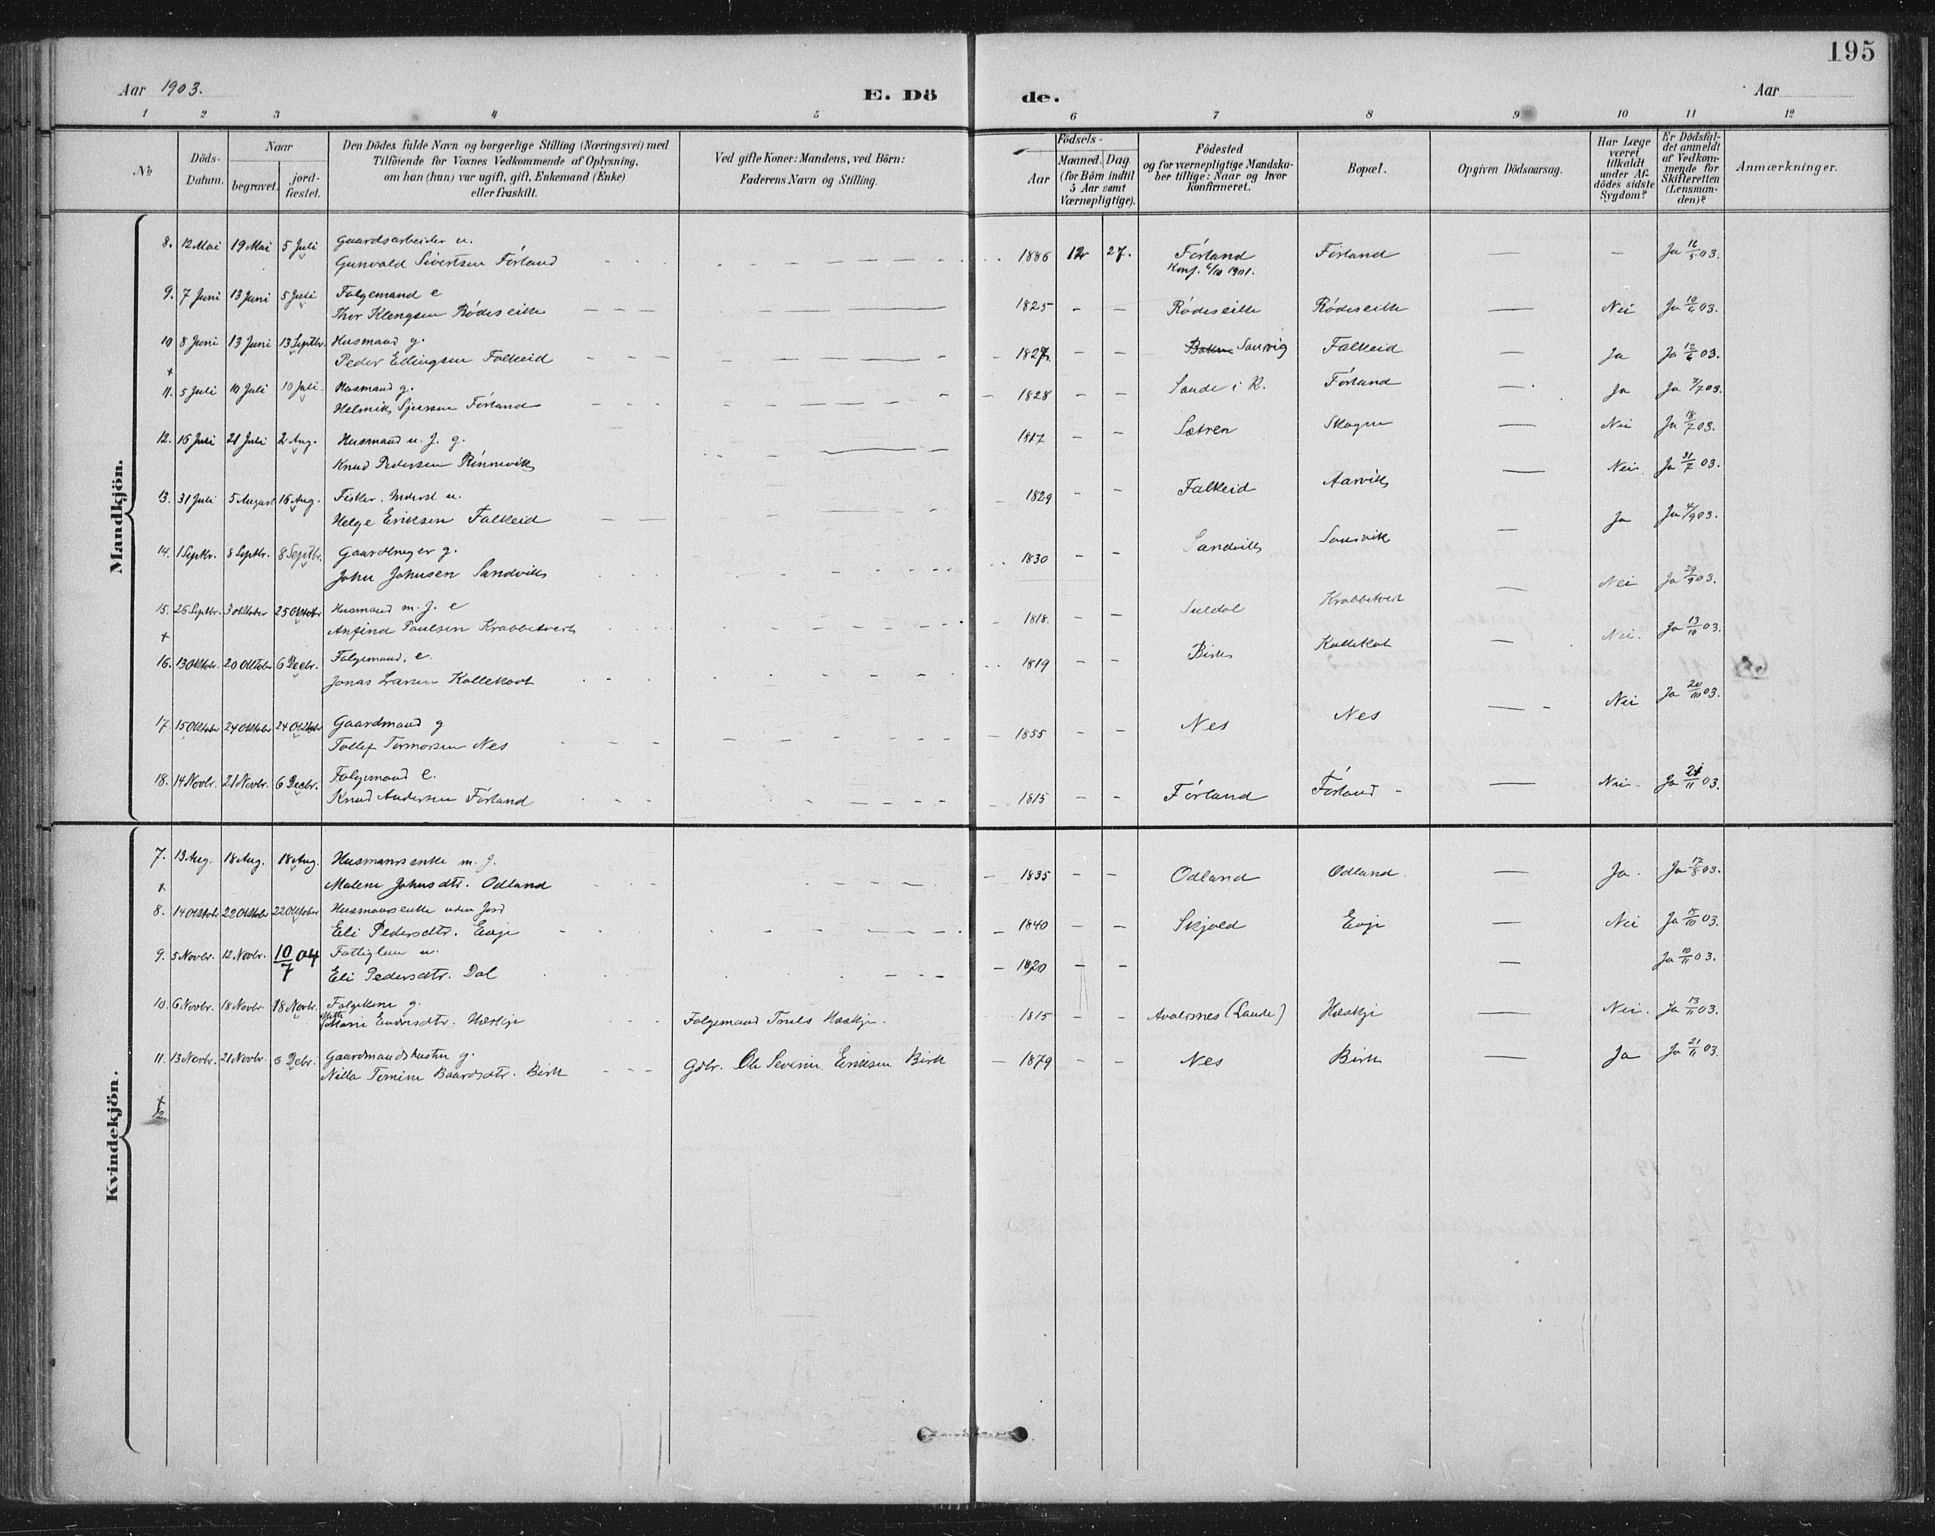 195
Aar 1903. E. Dö de. Aar
1 2 3 4 5 6 7 8 9 10 11 12
No
Döds-Datum.
Naar
begravet.
jordfæstet.
Den Dödes fulde Navn og borgerlige Stilling (Næringsvei) med
Tilföiende for Voxnes Vedkommende af Oplysning,
om han (hun) var ugift, gift, Enkemand (Enke)
eller fraskilt.
Ved gifte Koner: Mandens, ved Börn:
Faderens Navn og Stilling.
Födsels-
Aar
Maaned. Dag
(for Börn indtil
5 Aar samt
Værnepligtige).
Födested
og for værnepligtige Mandska-
ber tillige: Naar og hvor
Konfirmeret.
Bopæl.
Opgiven Dödsaarsag.
Har Læge
været
tilkaldt
under Af-
dödes sidste
Sygdom?
Er Dödsfal-
det anmeldt
af Vedkom-
mende for
Skifteretten
(Lensman-
den)?
Anmærkninger.
Mandkjön.
8. 12 Mai 19 Mai 5 Juli Gaardsarbeider u.
Gunvald Sivertsen Førland — 1886 12 27. Førland Førland — — Ja 16/5 03.
Konf. 6/10 1901.
9. 7 Juni 13 Juni 5 Juli Folgemand e
Thor Klengsen Rødeseike — 1825 - - Rødeseike Rødeseike — Nei Ja 10/6 03.
10 8 Juni 13 Juni 13 Septbr. Husmand g.
Peder Ellingsen Falkeid — 1827 - - Falkeid — Ja Ja 12/6 03.
+
11. 5 Juli 10 Juli 10 Juli Husmand g.
Helmik Førland — 1828 - - Sande i R. Førland — Ja Ja 7/7 03.
12. 16 Juli 21 Juli 2 Aug. Husmand u. J. g.
Knud Pedersen Rønnevik — 1817 - - Sætren Skogen — Nei Ja 18/7 03.
13. 31 Juli 5 August 16 Aug. Fisker, u.
Helge Eriksen Falkeid — 1829 - - Falkeid Aarvik — Nei Ja 31/7 03.
14. 1 Septbr. 8 Septbr. 8 Septbr. Gaardbruger g.
John Johnsen Sandvik 1830 - - Sandvik — Ja Ja 4/9 03.
15. 26 Septbr. 3 Oktober 25 Oktober Husmand m. J. e
Anfind Paulsen Krabbetveit 1818. - Suldal Krabbetveit — Nei Ja 29/9 03.
+
16. 13 Oktobr. 20 Oktobr 6 Decbr. Folgemand, e.
Jonas Larsen Kallekodt 1819 - - Birk Kallekodt — Nei. Ja 13/10 03.
17. 15 Oktober 24 Oktober 24 Oktober Gaardmand g
Tollef Tormorsen Nes — 1855 - - Nes Nes — Nei Ja 20/10 03.
18. 14 Novbr. 21 Novbr. 6 Decbr. Folgemand e.
Knud Andersen Førland — 1815 - - Førland Førland — Nei Ja 21/11 03.
Kvindekjön.
7. 13 Aug. 18 Aug. 18 Aug. Husmansenke m. J.
+ Malene Johnsdtr. Odland — 1835 - - Odland Odland. — Ja. Ja 17/8 03.
8. 14 Oktobr 22 Oktobr 22 Oktober Husmansenke uden Jord
Eli Pedersdtr. Evje — 1840 - - Skjold Evje — Nei Ja 15/10 03.
9. 5 Novbr. 12 Novbr. 10/7 04 Fattiglem u.
Eli Pedersdtr. Dal — 1820 - - — Ja 10/11 03.
10. 6 Novbr. 18 Novbr. 18 Novbr. Folgekone g.
Marie Endresdtr. Hæskje Folgemand Truls Hæskje. 1815 - - Avalsnes Hæskje — Nei. Ja 13/11 03.
11. 13 Novbr. 21 Novbr. 6 Decbr. Gaardmandshustru g.
Nilla Tomine Baardsdtr. Birk Gdbr. Ole Severin Eriksen Birk — 1879 - - Nes Birk — Ja Ja 21/11 03.
+
12